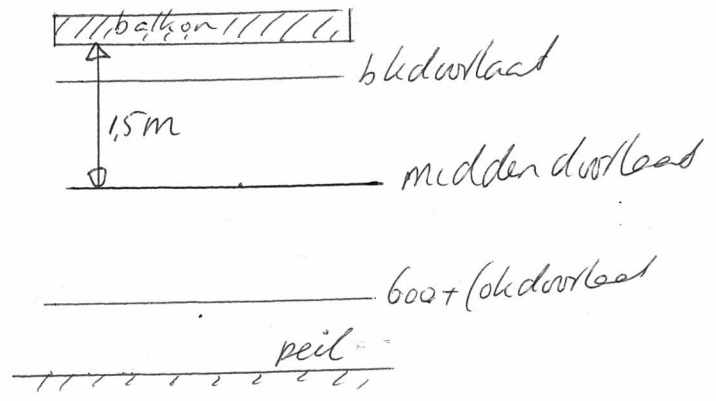 balkon
bkdoorlaat
1,5m
middendoorlaat
600+ (okdoorlaat
peil